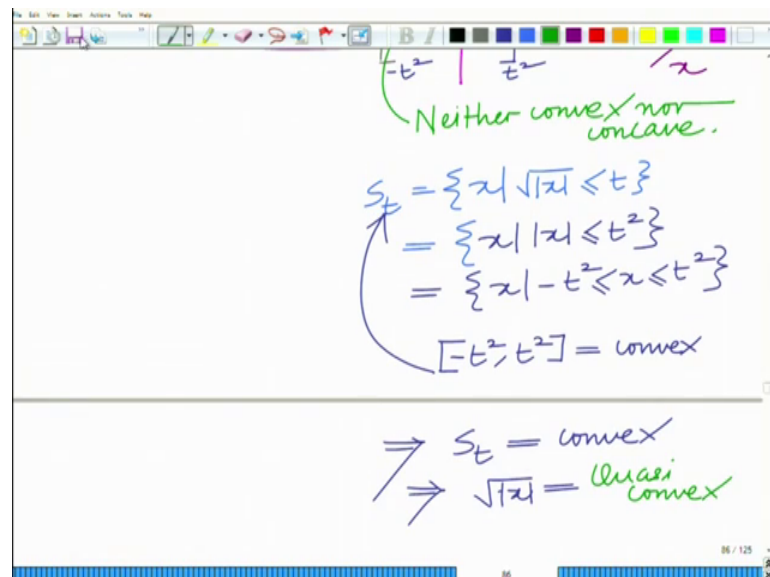 File Edit View Insert Actions Tools Help
B I
-t² t² x
Neither convex nor
concave.
S_t = {x | √|x| ≤ t}
= {x | |x| ≤ t²}
= {x | -t² ≤ x ≤ t²}
[-t², t²] = convex
⇒ S_t = convex
⇒ √|x| = Quasi
convex
86 / 125
86